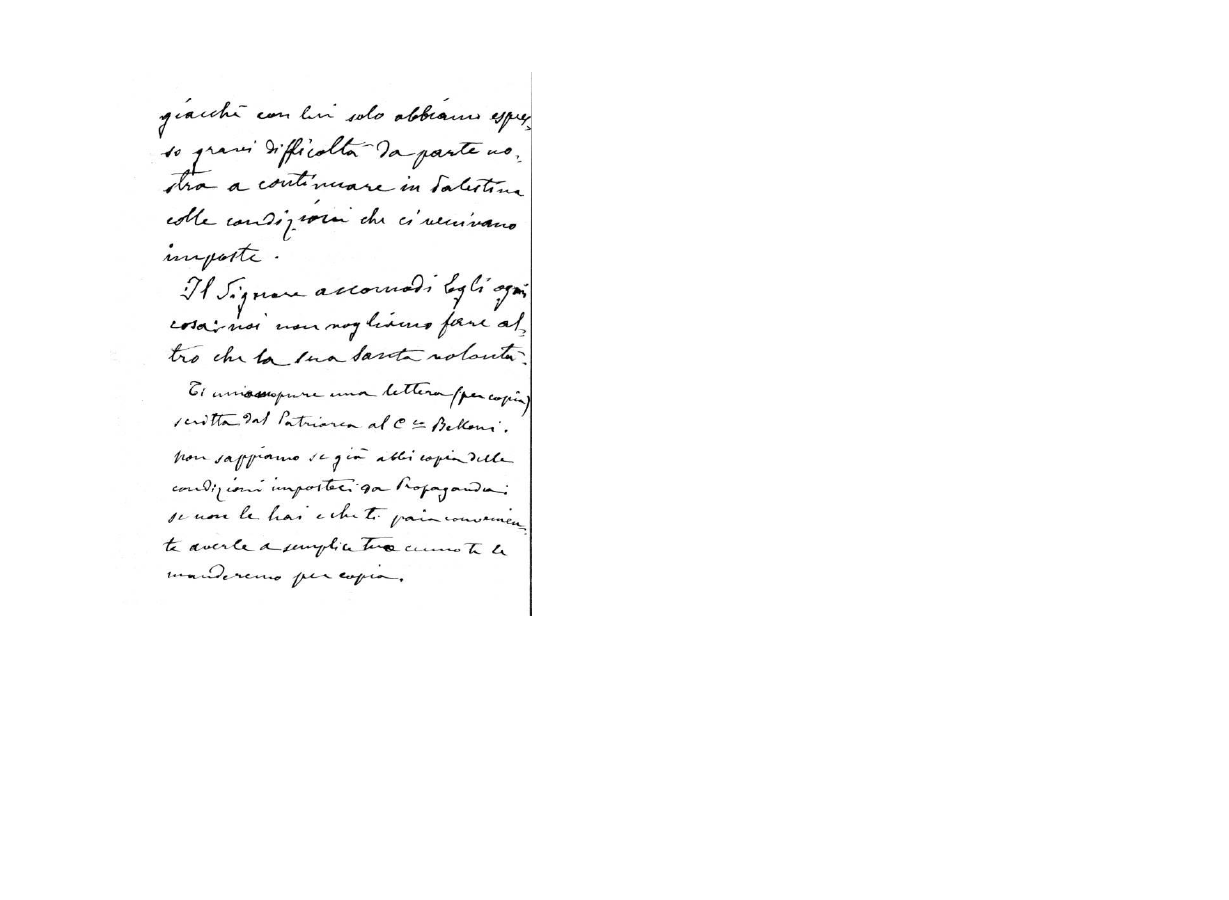 giacchè con lui solo abbiamo espres-
so gravi difficoltà da parte no-
stra a continuare in Palestina
colle condizioni che ci venivano
imposte.
Il Signore accomodi Egli ogni
cosa: noi non vogliamo fare al-
tro che la sua santa volontà.
Ti uniamo pure una lettera (per copia)
scritta dal Patriarca al C.co Belloni.
Non sappiamo se già abbi copia delle
condizioni imposteci da Propaganda:
se non le hai e che ti paia convenien-
te averle a semplice tuo cenno te le
manderemo per copia.